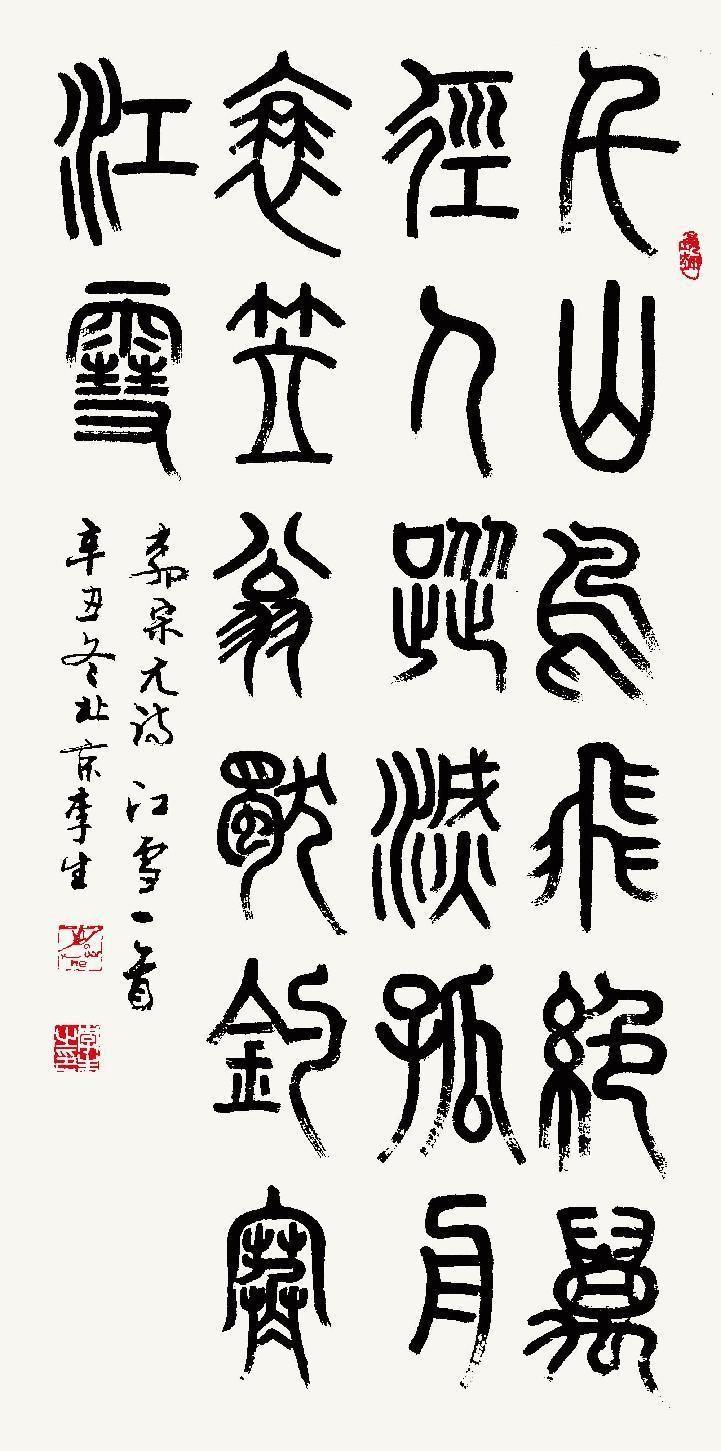 千山鳥飛絕萬
徑人蹤滅孤舟
衰笠翁獨釣寒
江雪
柳宗元诗江雪一首
辛丑冬北京李生